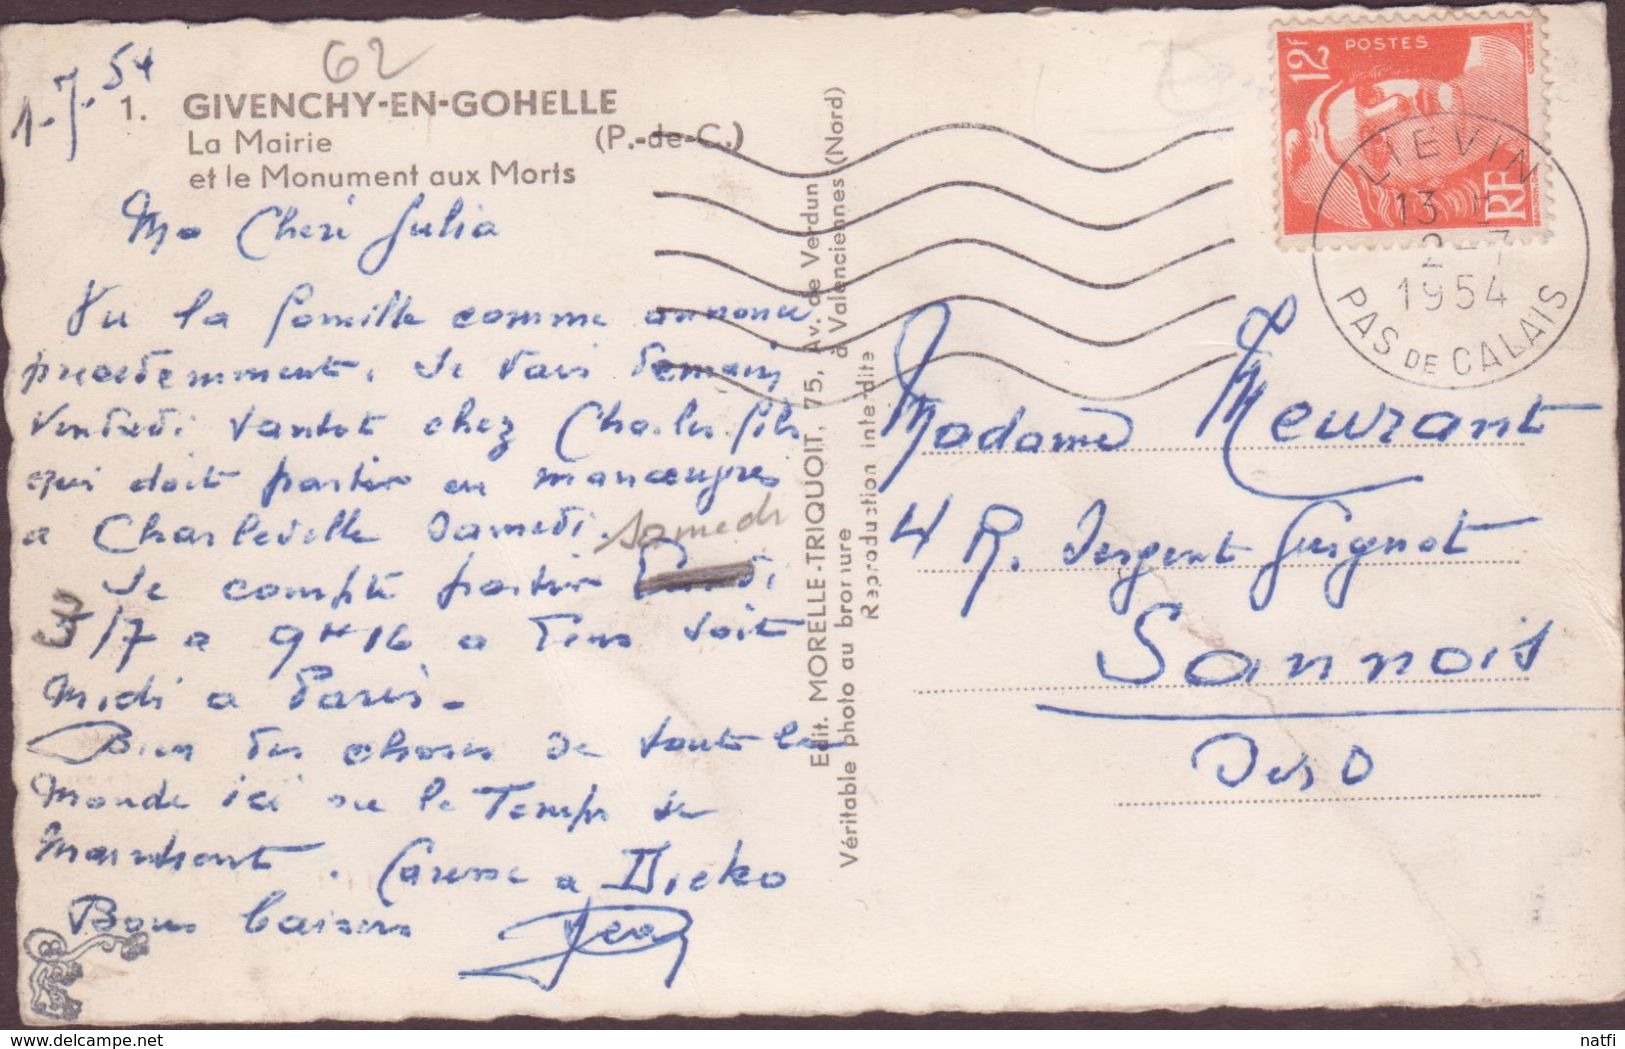 1-7-54
62
1. GIVENCHY-EN-GOHELLE
La Mairie (P.-de-C.)
et le Monument aux Morts
Ma Cheri Julia
Vu la famille comme annoncé
precedemment. Je vais demain
Vendredi tantot chez Charles fils
qui doit partir en manoeuvres
a Charleville Samedi.
samedi
Je compte partir
3/7 a 9H16 a Lens soit
Midi a Paris.
Bien des choses de toute le
Monde ici ou le Temps se
maintient. Caresse a Dicko
Bons baisers Jean
Edit. MORELLE-TRIQUOIT, 75, Av. de Verdun
à Valenciennes (Nord)
Véritable photo au bromure
Reproduction interdite
12F POSTES
RF
LIEVIN
13 H
2-7
1954
PAS DE CALAIS
Madame Meurant
4 R. Sergent Guignot
Sannois
S et O
delcampe.net
natfi